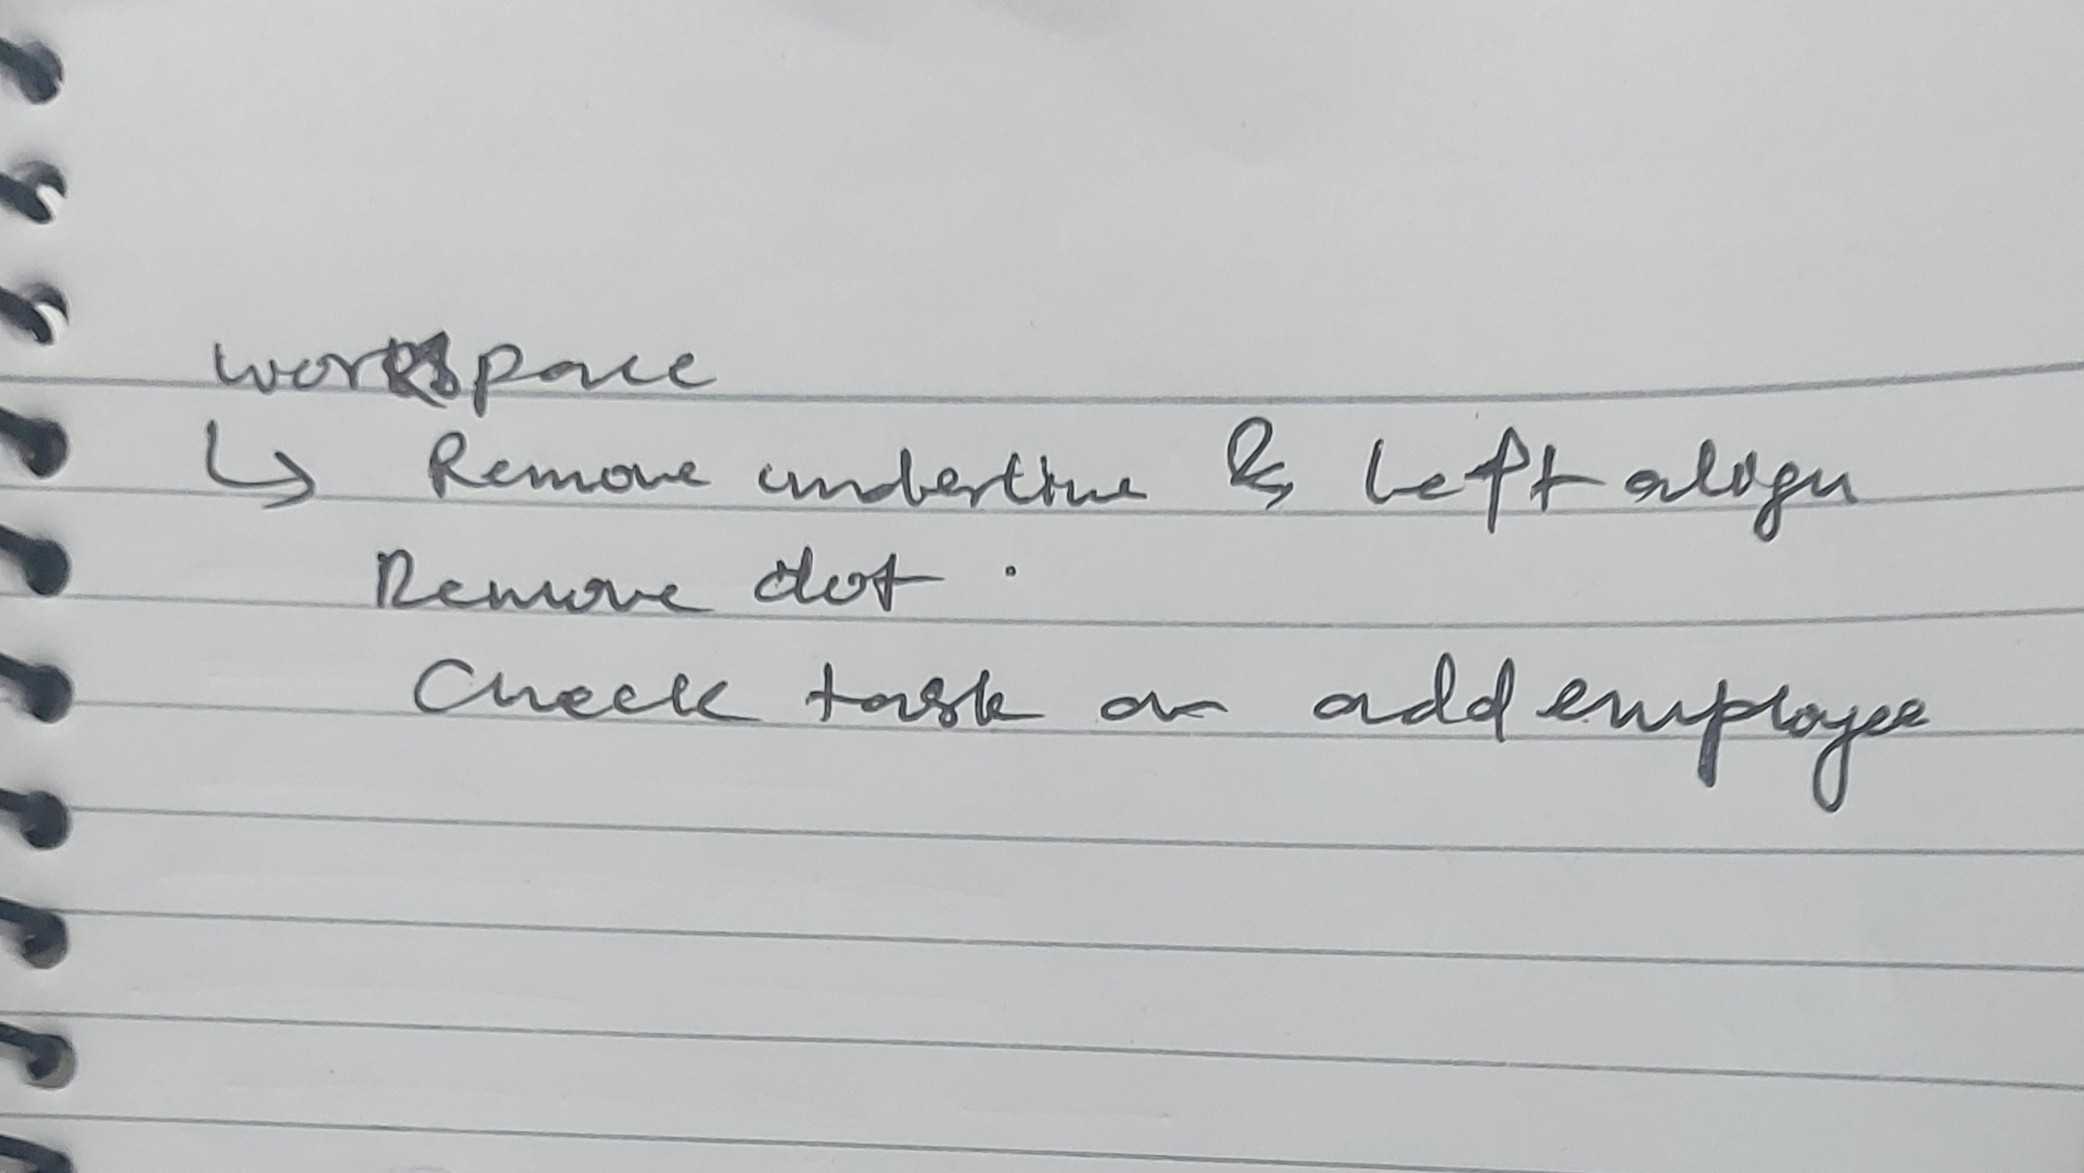 workspace
↳ Remove underline & Left align
Remove dot .
Check task on add employee